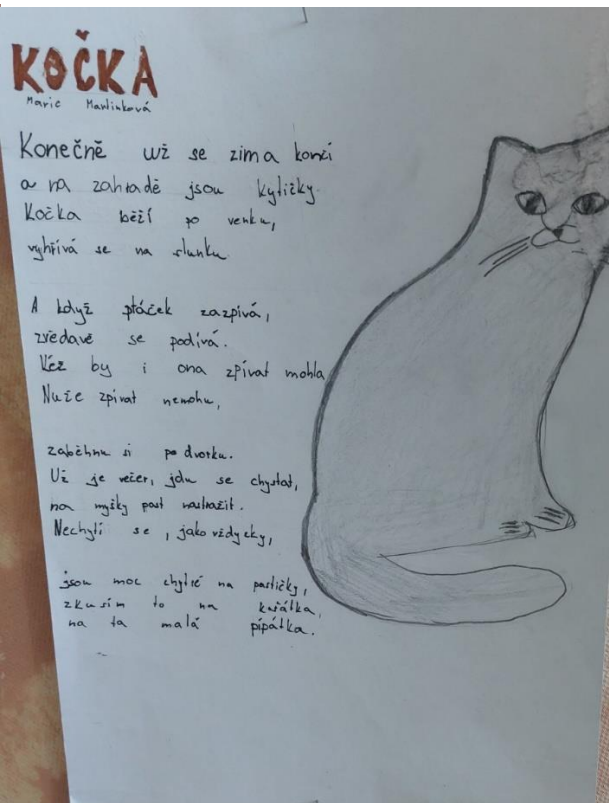 KOČKA
Marie Mavlinková
Konečně už se zima končí
a na zahradě jsou kytičky.
Kočka běží po venku,
vyhřívá se na slunku.
A když ptáček zazpívá,
zvědavě se podívá.
Kéž by i ona zpívat mohla
Nuže zpívat nemohu,
zaběhnu si po dvorku.
Už je večer, jdu se chystat,
na myšky past nastražit.
Nechytí se, jako vždycky,
jsou moc chytré na pastičky,
zkusím to na kuřátka,
na ta malá pípátka.